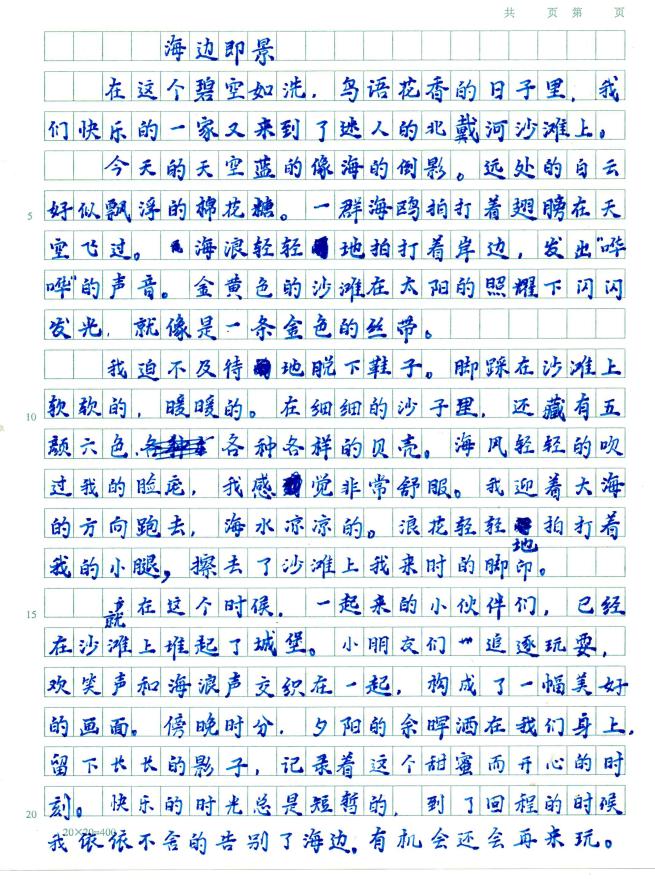 共 页 第 页
海边即景
在这个碧空如洗，鸟语花香的日子里，我
们快乐的一家又来到了迷人的北戴河沙滩上。
今天的天空蓝的像海的倒影。远处的白云
5 好似飘浮的棉花糖。一群海鸥拍打着翅膀在天
空飞过。海浪轻轻地拍打着岸边，发出“哗
哗”的声音。金黄色的沙滩在太阳的照耀下闪闪
发光，就像是一条金色的丝带。
我迫不及待地脱下鞋子。脚踩在沙滩上
10 软软的，暖暖的。在细细的沙子里，还藏有五
颜六色、各种各样的贝壳。海风轻轻的吹
过我的脸庞，我感觉非常舒服。我迎着大海
的方向跑去，海水凉凉的。浪花轻轻地拍打着
我的小腿，擦去了沙滩上我来时的脚印。
15 就在这个时候，一起来的小伙伴们，已经
在沙滩上堆起了城堡。小朋友们追逐玩耍，
欢笑声和海浪声交织在一起，构成了一幅美好
的画面。傍晚时分，夕阳的余晖洒在我们身上，
留下长长的影子，记录着这个甜蜜而开心的时
20 刻。快乐的时光总是短暂的，到了回程的时候
20×20=400
我依依不舍的告别了海边，有机会还会再来玩。